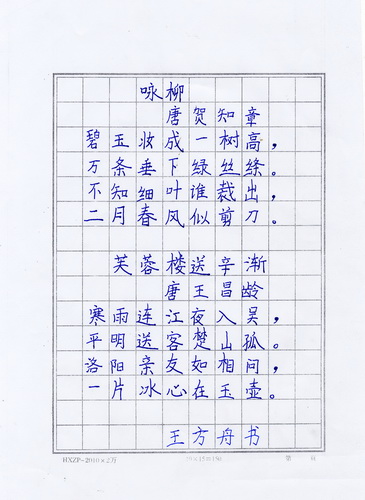 咏柳
唐贺知章
碧玉妆成一树高，
万条垂下绿丝绦。
不知细叶谁裁出，
二月春风似剪刀。
芙蓉楼送辛渐
唐王昌龄
寒雨连江夜入吴，
平明送客楚山孤。
洛阳亲友如相问，
一片冰心在玉壶。
王方舟书
HXZP-2010×2万
第 页